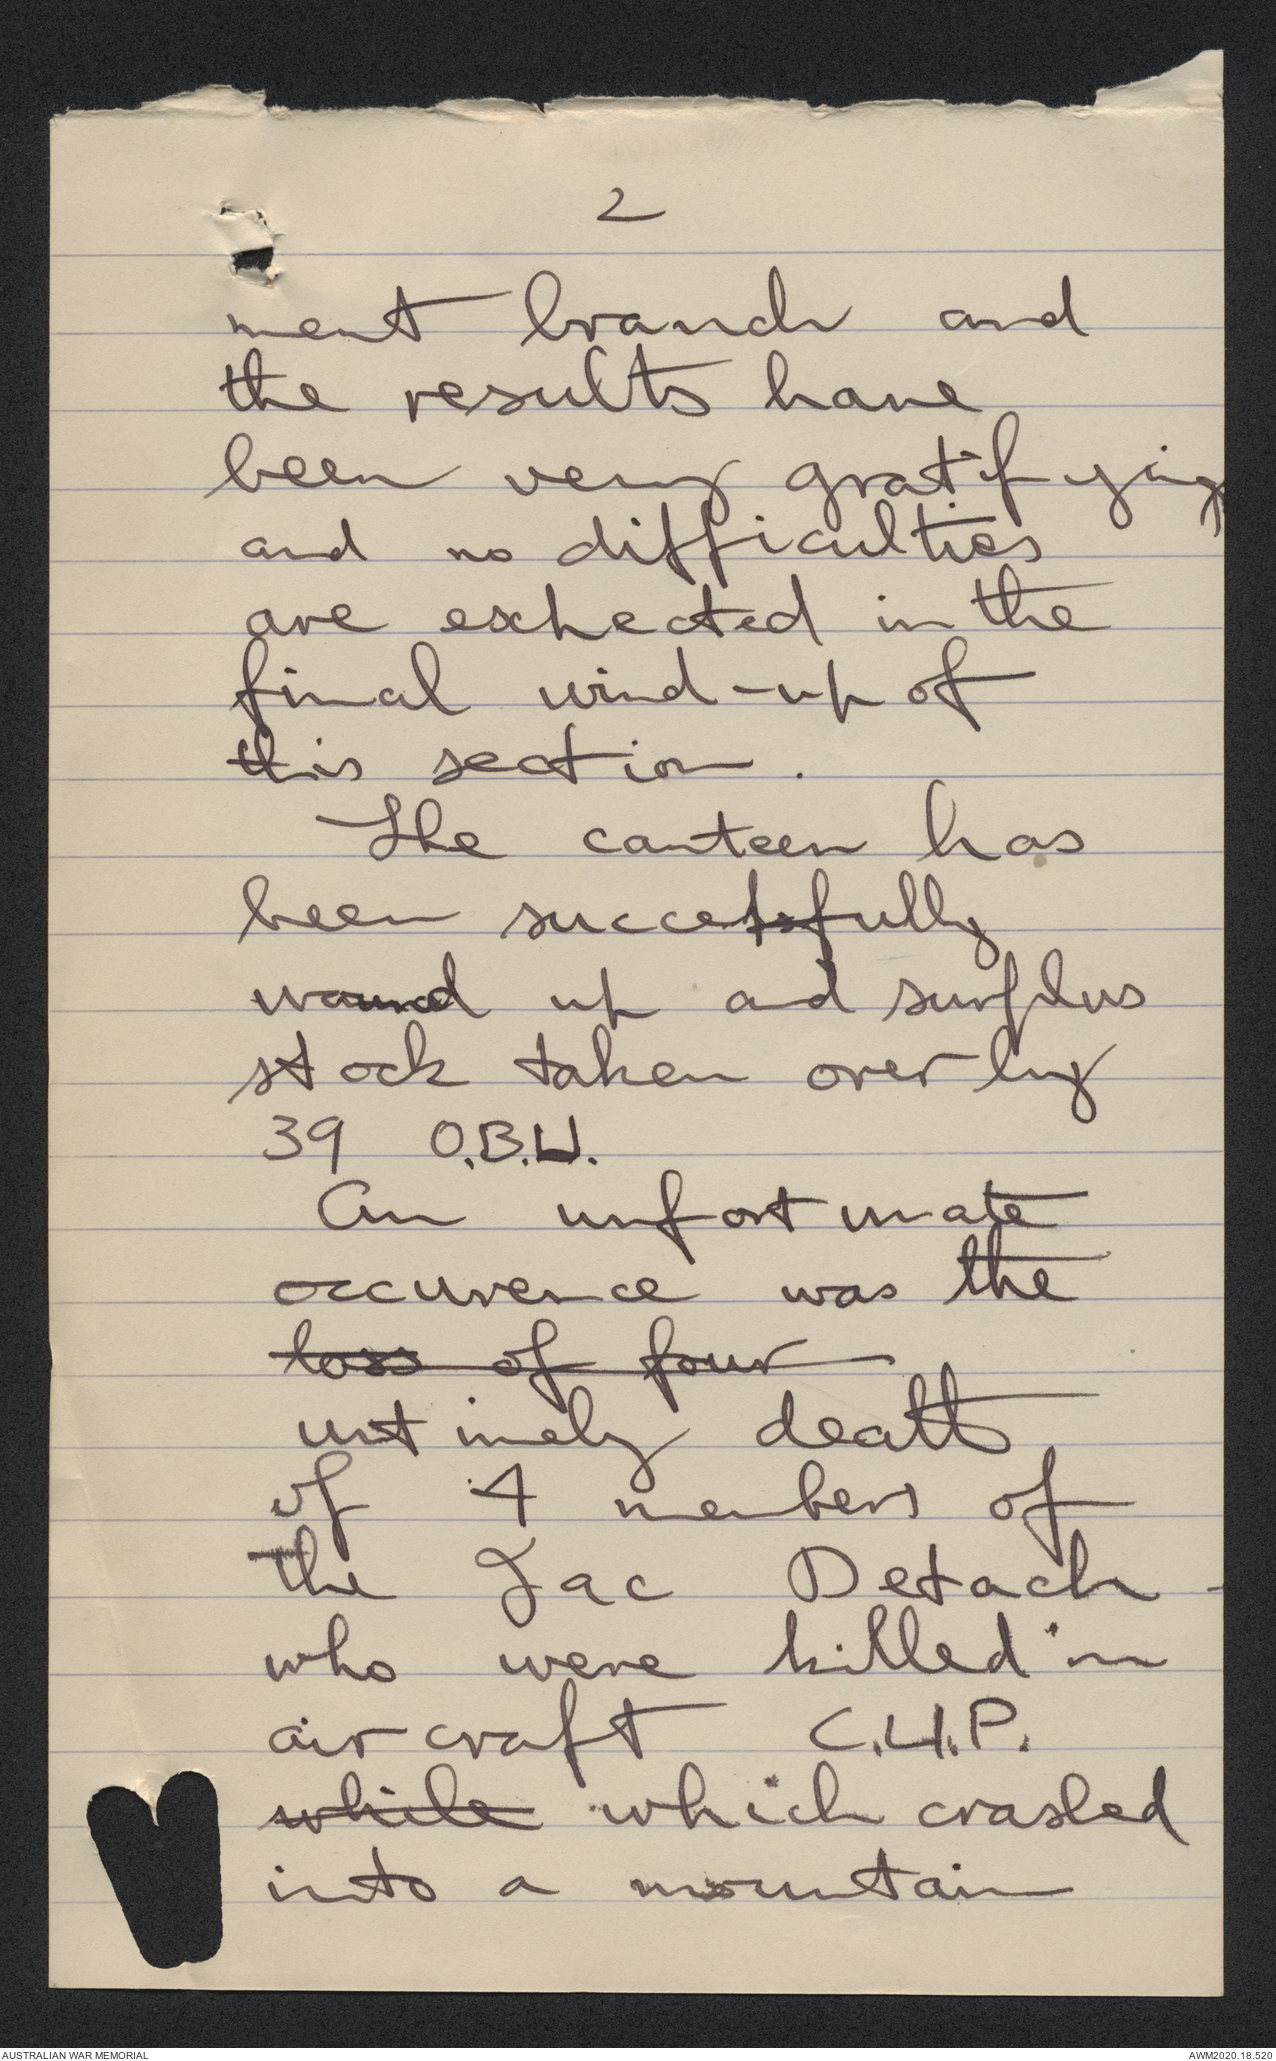 2
ment branch and
the results have
been very gratifying
and no difficulties
are expected in the
final wind-up of
this section.
The canteen has
been successfully
wound up and surplus
stock taken over by
39 O.B.U.
An unfortunate
occurence was the
loss of four
untimely death
of 4 members of
the Jac Detach-
who were killed in
aircraft C.U.P.
while which crashed
into a mountain
AUSTRALIAN WAR MEMORIAL
AWM2020.18.520